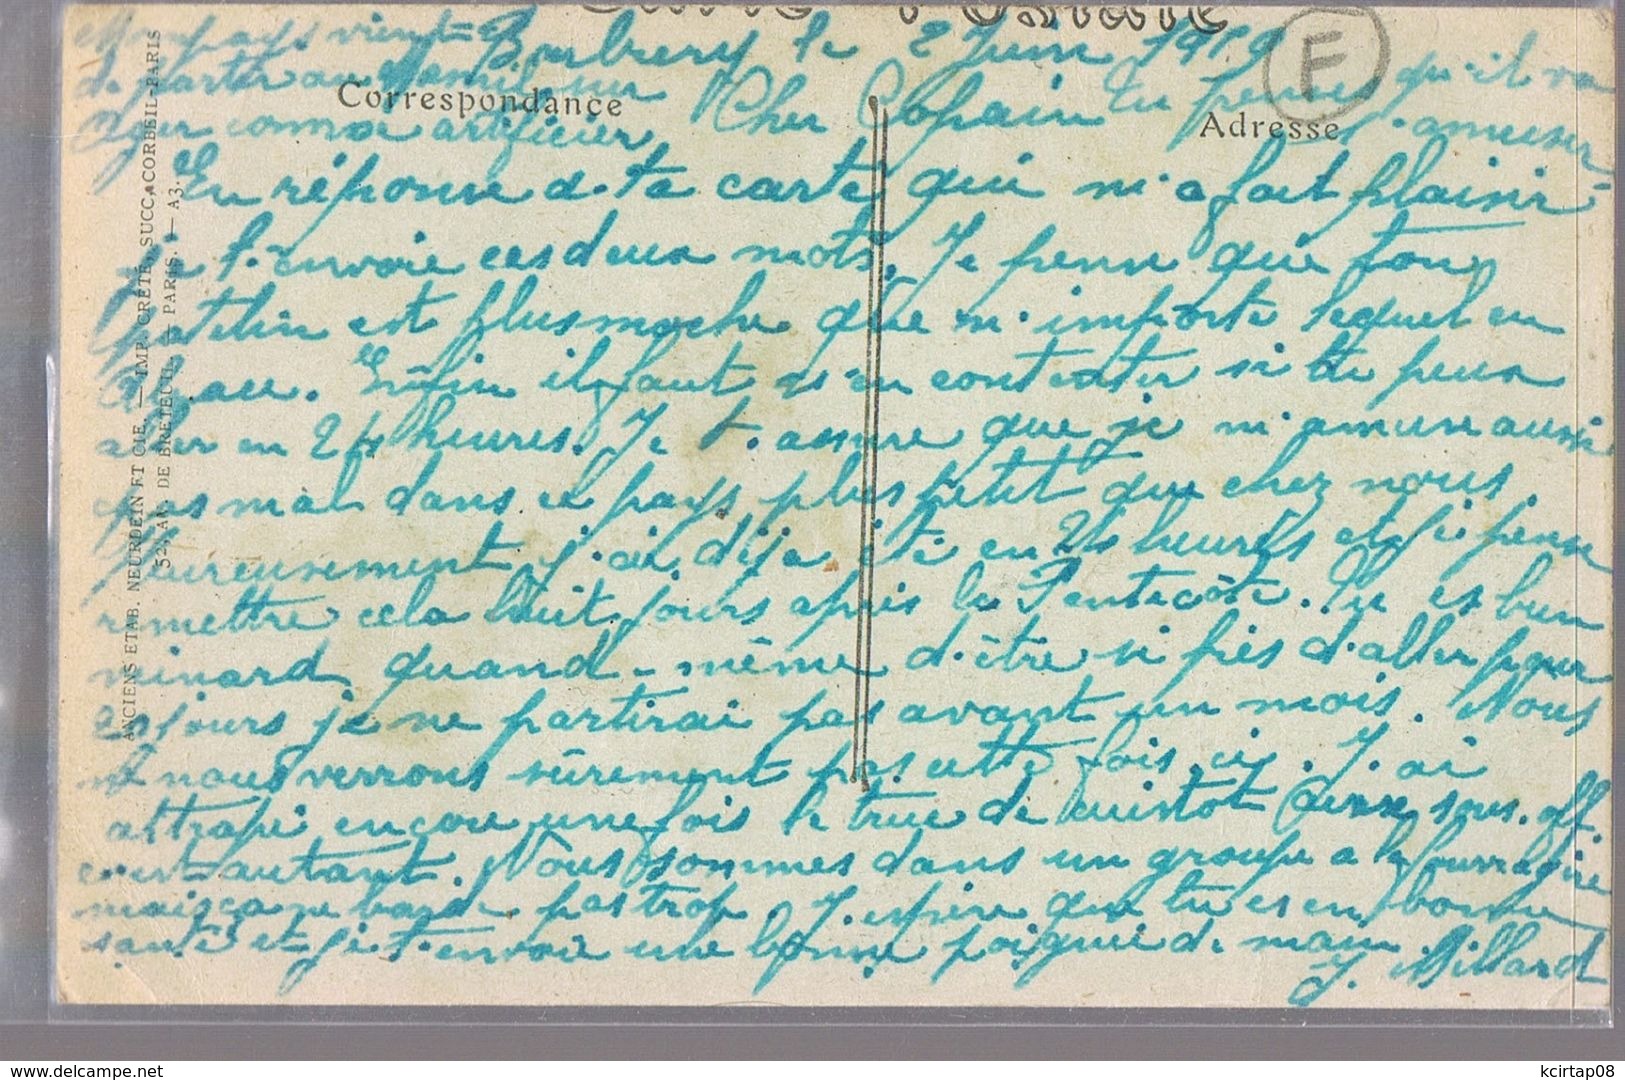 Mon pays vient
de partir au
pour comme artificier
le 2 Juin 1919
Cher Copain
Tu penses qu'il va
s'amuser
F
Correspondance
Adresse
En réponse à ta carte qui m'a fait plaisir
je t'envoie ces deux mots. Je pense que ton
patelin est plus moche que n'importe lequel en
Enfin il faut s'en contenter si tu peux
aller en 24 heures. Je t'assure que je m'amuse aussi
pas mal dans ce pays plus petit que chez nous.
Heureusement j'ai déjà été en 24 heures et je pense
remettre cela huit jours après la Pentecôte. Tu es bien
veinard quand-même d'être si près d'aller pour
20 jours je ne partirai pas avant un mois. Nous
nous verrons sûrement pas cette fois ci. J'ai
attrapé encore une fois le truc de cuistot sous-off.
c'est autant. Nous sommes dans un groupe à la fourragère
mais ça ne barde pas trop. J'espère que tu es en bonne
santé et je t'envoie une bonne poignée de main.
J. Millard
ANCIENS ETAB. NEURDEIN ET CIE. — IMP. CRÉTÉ, SUCC. CORBEIL-PARIS
52, AV. DE BRETEUIL — PARIS. — A3.
kcirtap08